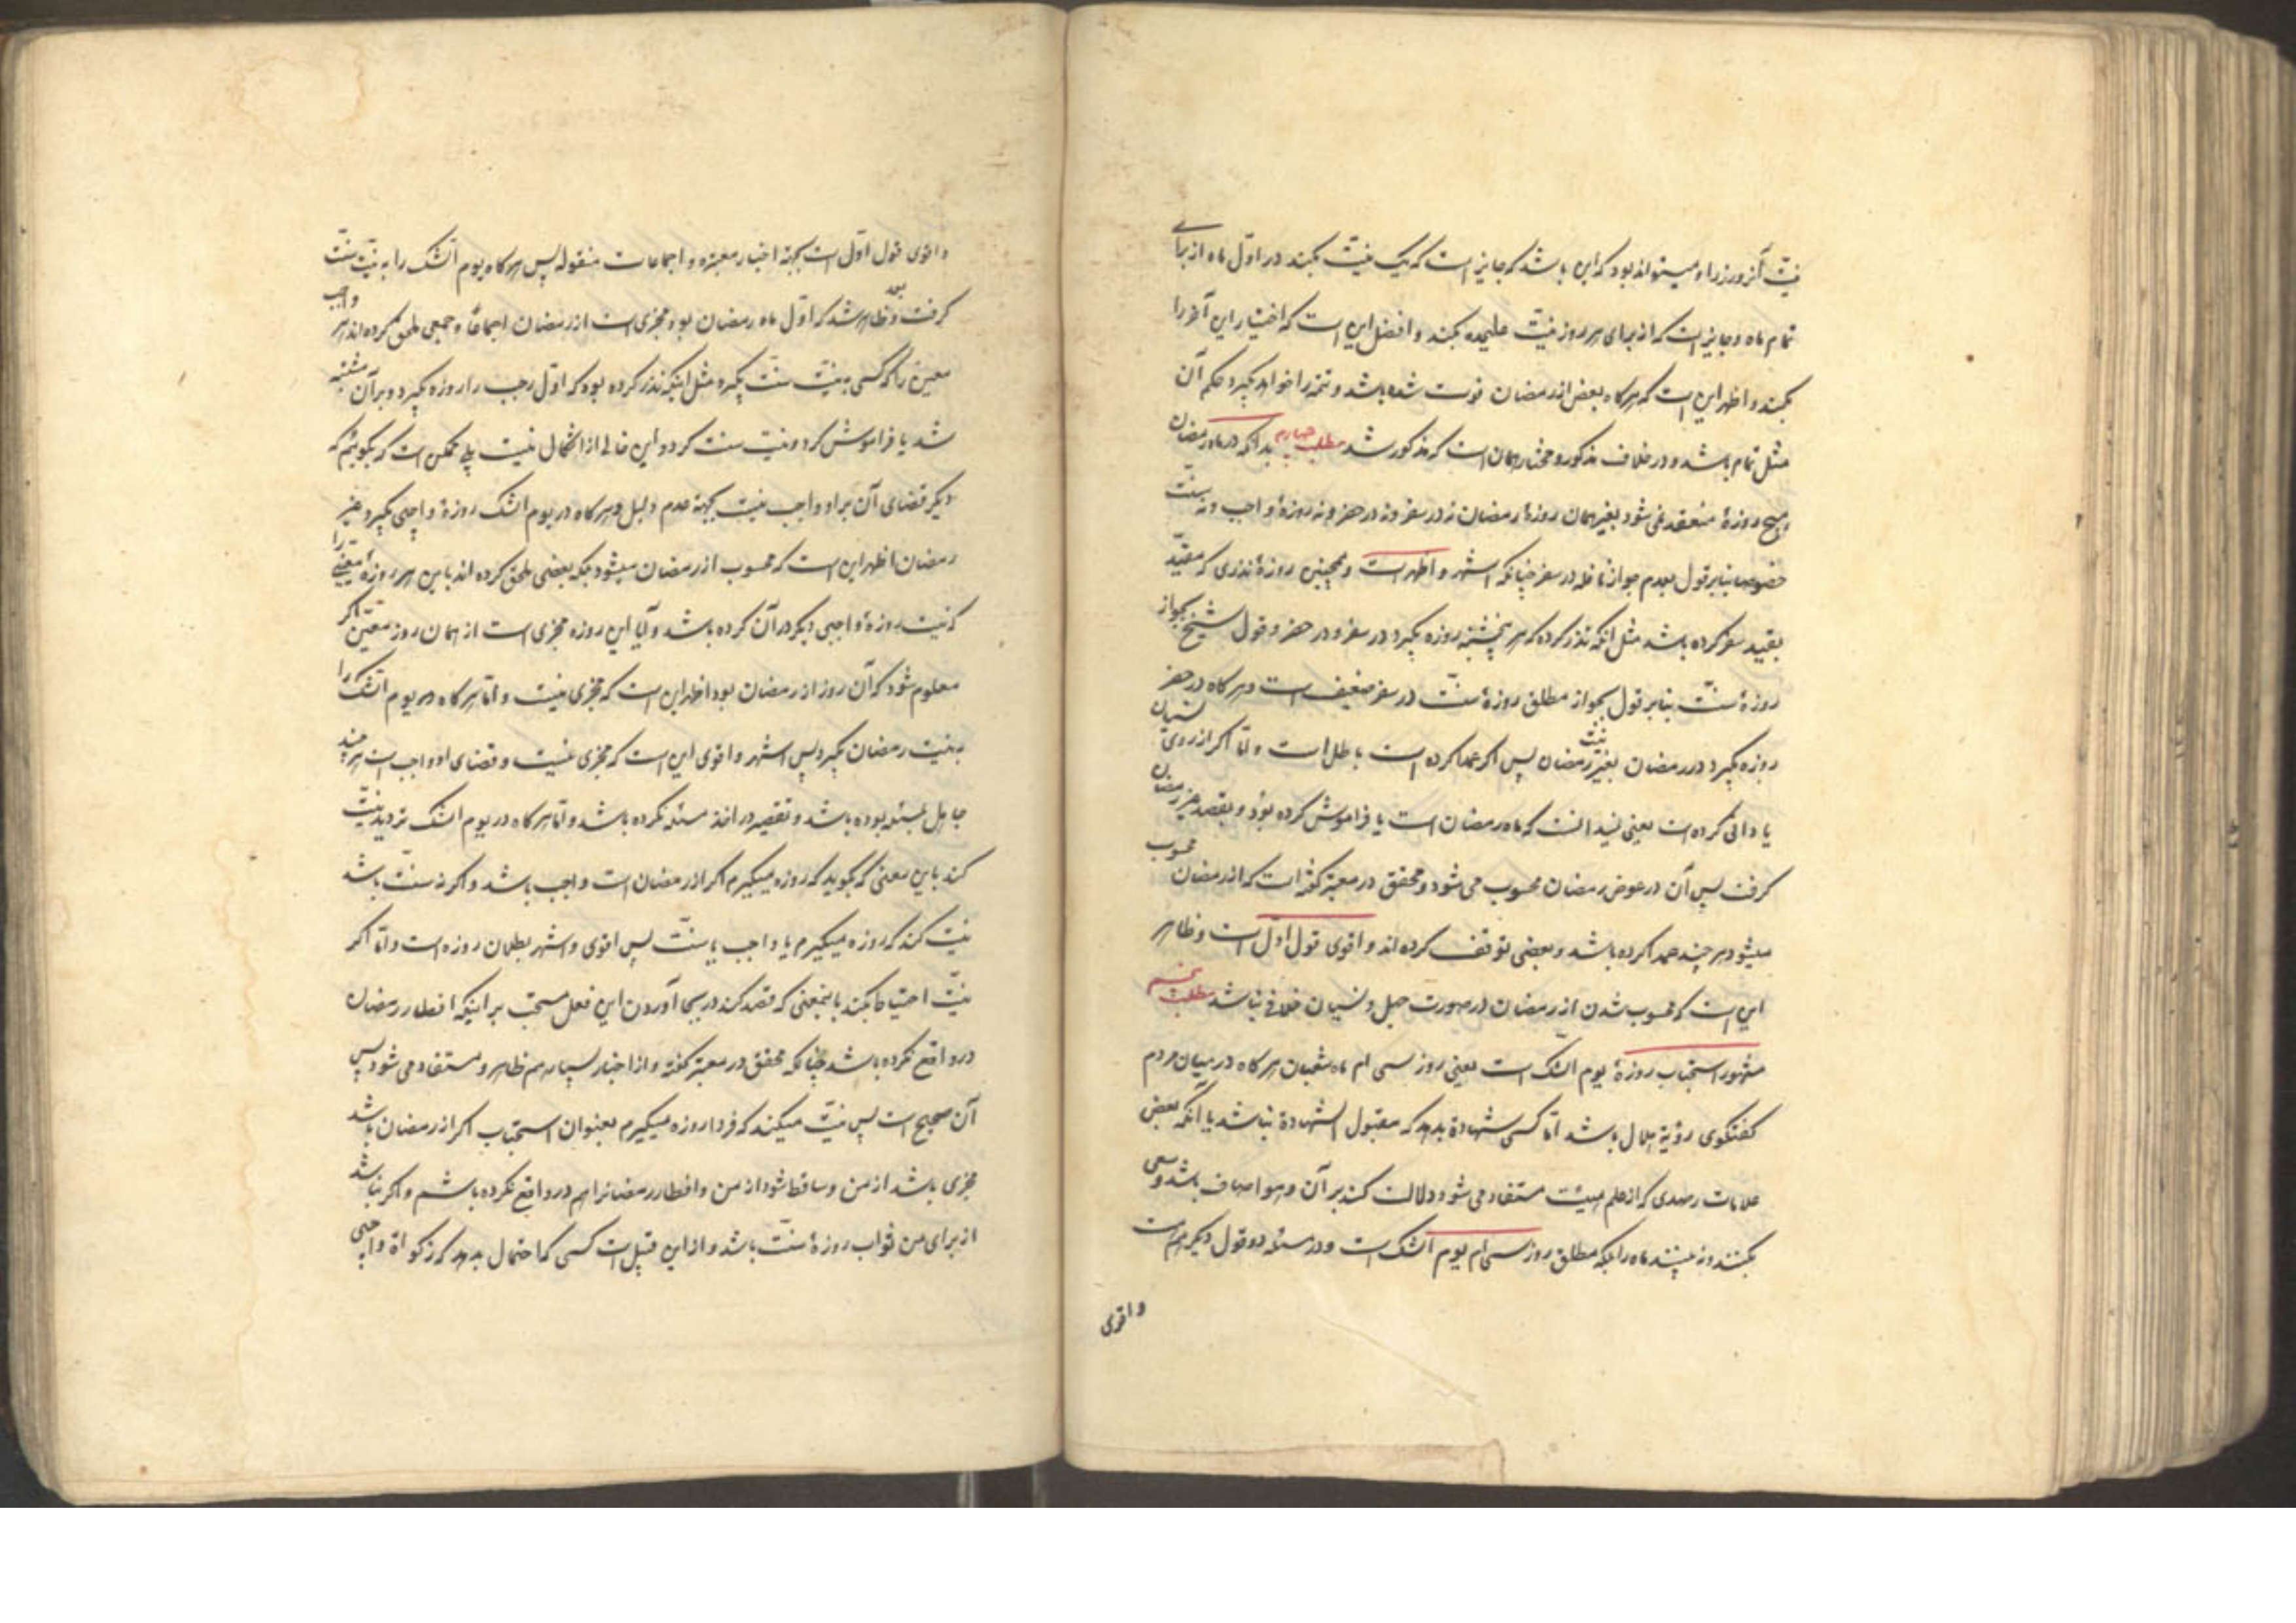 نیت آنروز را و میتواند بود که این باشد که جایز است که یک نیت بکند در اول ماه از برای
تمام ماه و جایز است که از برای هر روز نیت علیحده بکند و افضل این است که اختیار این آخر را
بکند و اظهر این است که هرگاه بعض از رمضان فوت شده باشد و تتمه را خواهد بگیرد حکم آن
مثل تمام باشد و در خلاف مذکور و مختار همان است که مذکور شد مطلب چهارم بدانکه در ماه رمضان
هیچ روزهٔ منعقد نمی شود بغیر همان روزهٔ رمضان نه در سفر و نه در حضر و نه روزهٔ واجب و نه سنت
خصوصا بنابر قول بعدم جواز نافله در سفر چنانکه اشهر و اظهر است و همچنین روزهٔ نذری که مقید
بقید سفر کرده باشد مثل آنکه نذر کرده که هر پنجشنبه روزه بگیرد در سفر و در حضر و قول شیخ بجواز
روزهٔ سنت بنابر قول بجواز مطلق روزهٔ سنت در سفر ضعیف است و هرگاه در حضر
روزه بگیرد در رمضان بغیر نیت رمضان پس اگر عمدا کرده است باطل است و اما اگر از روی نسیان
یا دانی کرده است یعنی نمیدانست که ماه رمضان است یا فراموش کرده بود و بقصد غیر رمضان
گرفت پس آن در عوض رمضان محسوب می شود و محقق در معتبر گفته است که از رمضان محسوب
میشود هر چند عمدا کرده باشد و بعضی توقف کرده اند و اقوی قول اول است و ظاهر
این است که محسوب شدن از رمضان در صورت جهل و نسیان خلافی نباشد مطلب پنجم
مشهور استحباب روزهٔ یوم الشک است یعنی روز سی ام ماه شعبان هرگاه در میان مردم
گفتگوی رؤیة هلال باشد اما کسی شهادة بدهد که مقبول الشهادة نباشد یا آنکه بعض
علامات رصدی که از علم هیئت مستفاد می شود دلالت کند بر آن و هوا صاف باشد و سعی
بکنند و نه بینند ماه را بلکه مطلق روز سی ام یوم الشک است و در مسئله دو قول دیگر هم هست
و اقوی
و اقوی قول اول است بجهة اخبار معتبره و اجماعات منقوله پس هرگاه یوم الشک را به نیت سنت
گرفت و بعد ظاهر شد که اول ماه رمضان بود مجزی است از رمضان اجماعا و جمعی ملحق کرده اند هر واجب
معین را که کسی به نیت سنت بگیرد مثل اینکه نذر کرده بود که اول رجب را روزه بگیرد و بر آن مشتبه
شد یا فراموش کرد و نیت سنت کرد و این خالی از اشکال نیست بلی ممکن است که بگوئیم که
دیگر قضای آن بر او واجب نیست بجهة عدم دلیل و هرگاه در یوم الشک روزهٔ واجبی بگیرد غیر
رمضان اظهر این است که محسوب از رمضان میشود بلکه بعضی ملحق کرده اند باین هر روزهٔ معینی را
که نیت روزهٔ واجبی دیگر در آن کرده باشد و آیا این روزه مجزی است از همان روز معین اگر
معلوم شود که آن روز از رمضان بود اظهر این است که مجزی نیست و اما هرگاه در یوم الشک را
به نیت رمضان بگیرد پس اشهر و اقوی این است که مجزی نیست و قضای او واجب است هر چند
جاهل بمسئله بوده باشد و تقصیر در اخذ مسئله نکرده باشد و اما هرگاه در یوم الشک تردید نیت
کند باین معنی که بگوید که روزه میگیرم اگر از رمضان است واجب باشد و اگر نه سنت باشد
نیت کند که روزه میگیرم یا واجب یا سنت پس اقوی و اشهر بطلان روزه است و اما اگر
نیت احتیاط بکند باینمعنی که قصد کند در بجا آوردن این فعل مستحب بر اینکه افطار رمضان
در واقع نکرده باشد چنانکه محقق در معتبر گفته و از اخبار بسیار هم ظاهر و مستفاد می شود پس
آن صحیح است پس نیت میکند که فردا روزه میگیرم بعنوان استحباب اگر از رمضان باشد
مجزی باشد از من و ساقط شود از من و افطار رمضانرا هم در واقع نکرده باشم و اگر نباشد
از برای من ثواب روزهٔ سنت باشد و از این قبیل است کسی که احتمال بدهد که زکواة واجبی